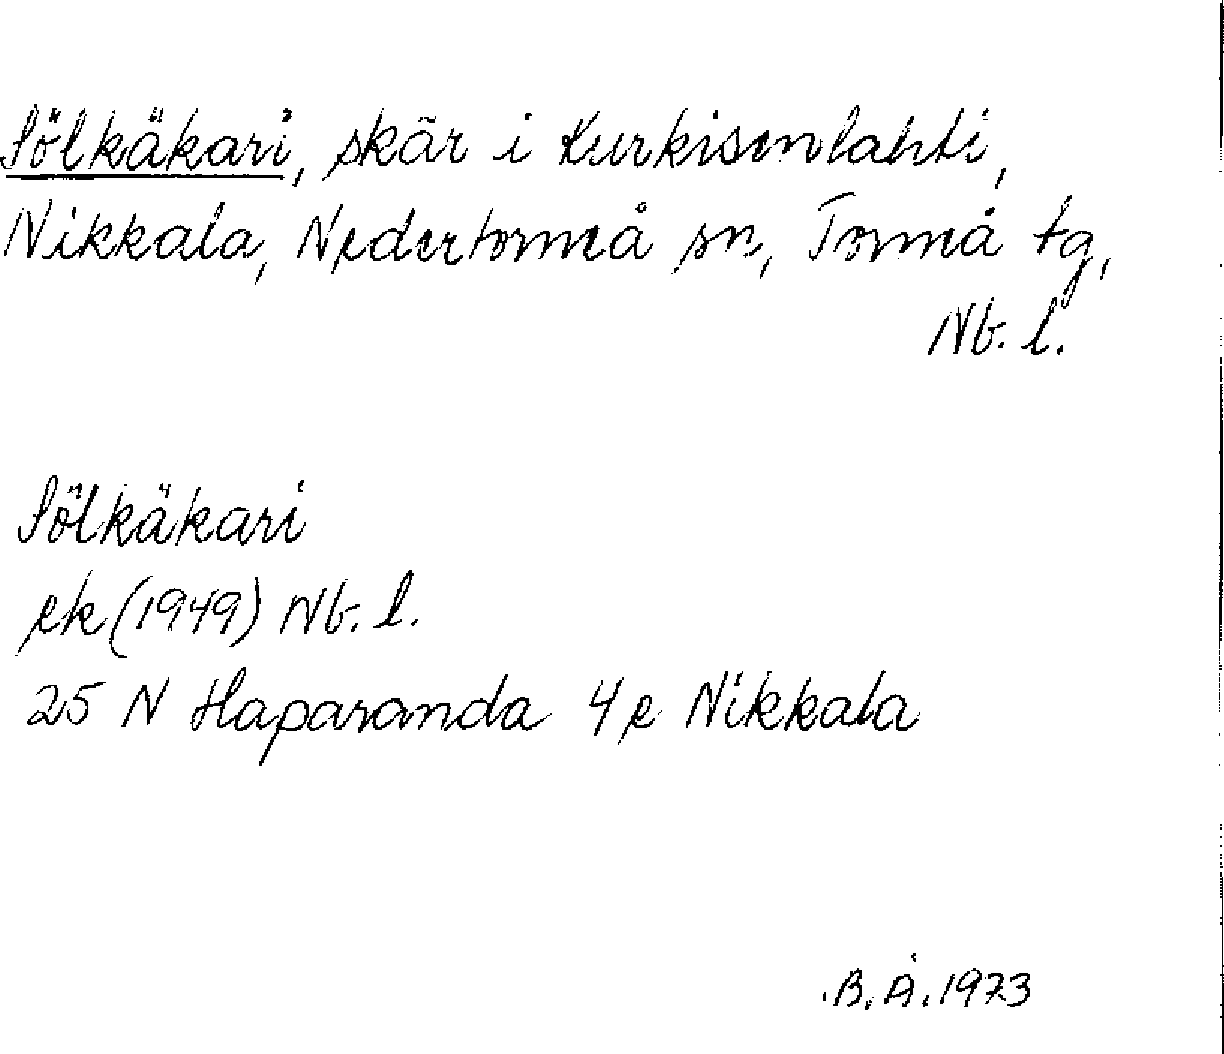 Sölkäkari, skär i Kurkisenlahti,
Nikkala, Nedertorneå sn, Torneå tg,
Nb. l.
Sölkäkari
ek (1949) Nb. l.
25 N Haparanda 4 e Nikkala
B. Å. 1973